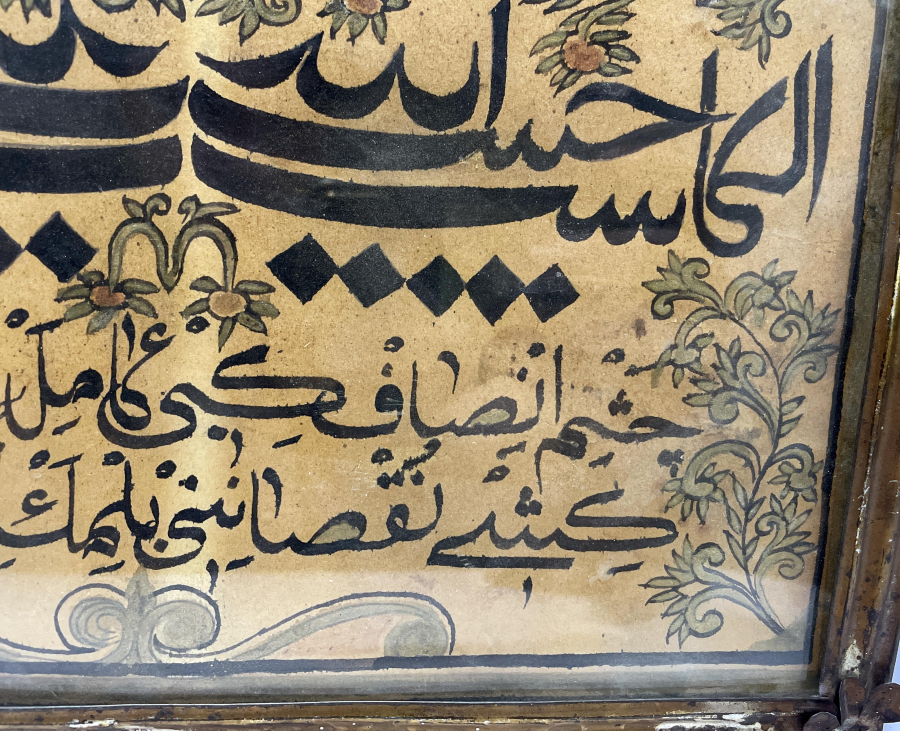 الكاسب حبيب الله
چشم انصاف كبى كامل
كشى نقصاننى بلمك